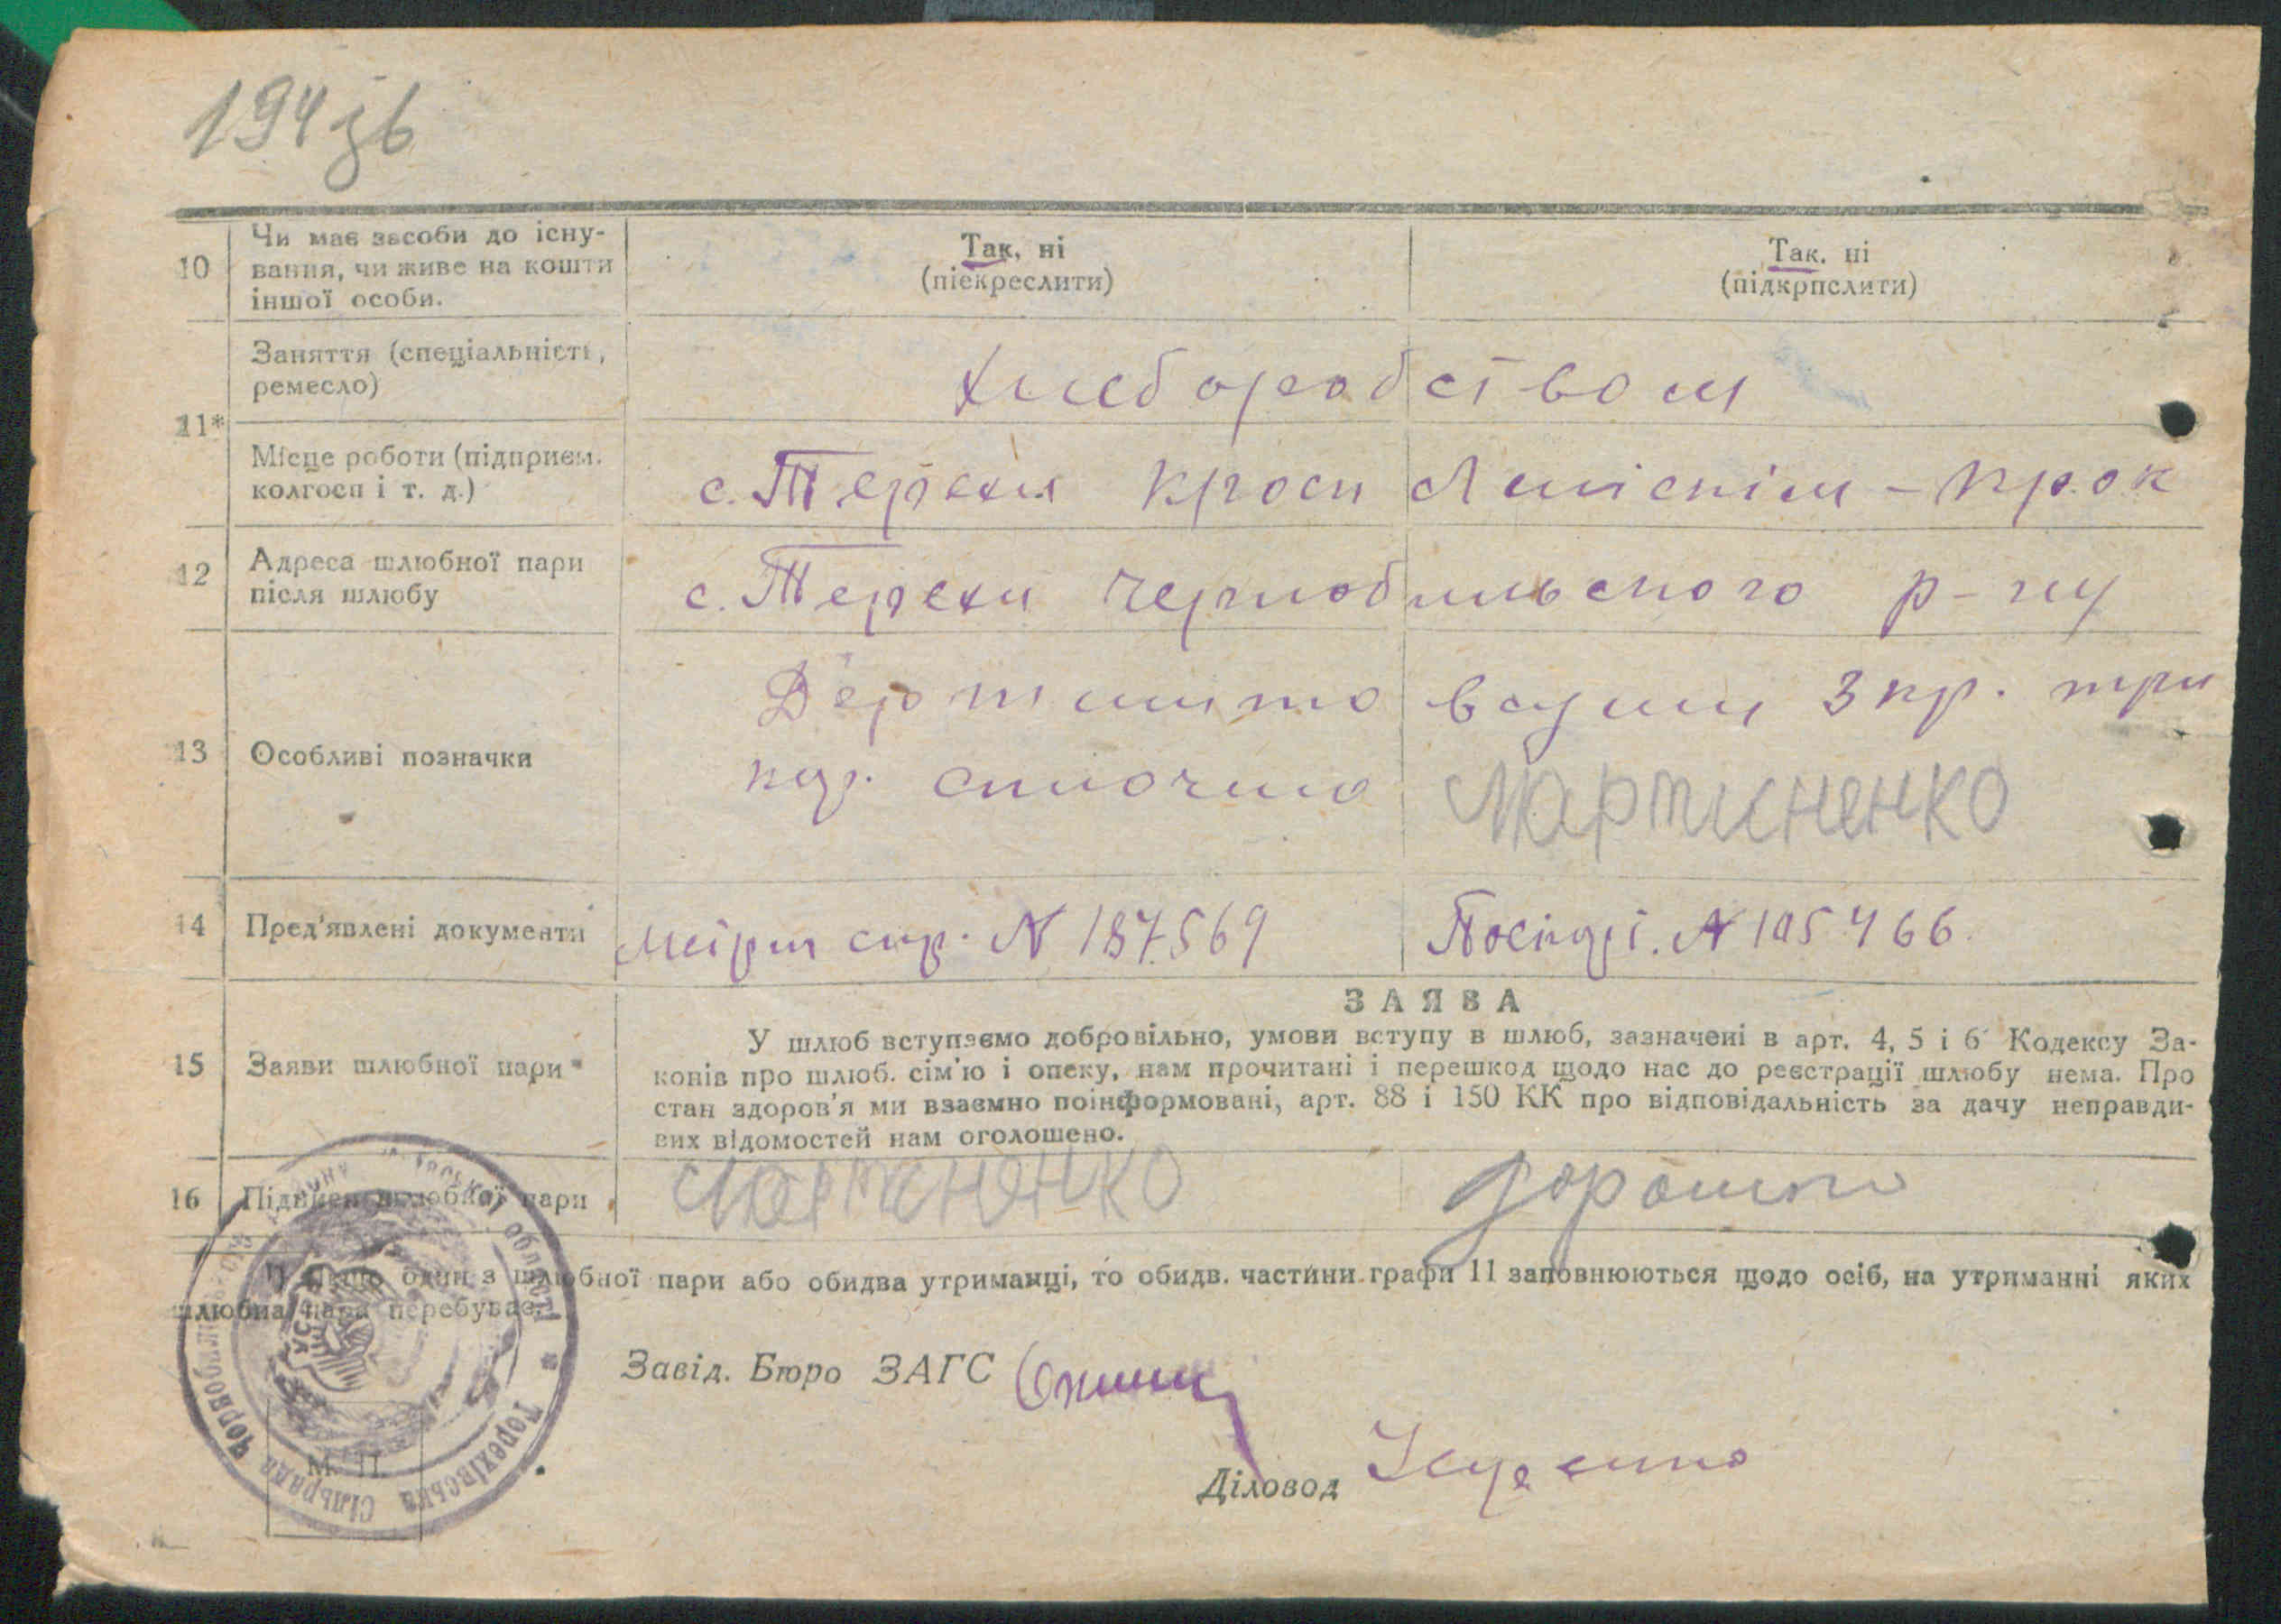 194 зв
10 Чи має засоби до існу-
вання, чи живе на кошти
іншої особи.
Так, ні
(піекреслити)
Так. ні
(підкрпслити)
11*
Заняття (спеціальність,
ремесло)
хліборобством
Місце роботи (підприєм.
колгосп і т. д.)
с. Терехи
12 Адреса шлюбної пари
після шлюбу
с. Терехи Чернобильского р-ну
13 Особливі позначки
3 кр. три
Мартиненко
14 Пред'явлені документи
спр. N 187569
N 105466
ЗАЯВА
15 Заяви шлюбної пари
У шлюб вступаємо добровільно, умови вступу в шлюб, зазначені в арт. 4, 5 і 6 Кодексу За-
конів про шлюб. сім'ю і опеку, нам прочитані і перешкод щодо нас до реєстрації шлюбу нема. Про
стан здоров'я ми взаємно поінформовані, арт. 88 і 150 КК про відповідальність за дачу неправди-
вих відомостей нам оголошено.
16 Підписи шлюбної пари
Мартиненко
Дорошко
*) Якщо один з шлюбної пари або обидва утриманці, то обидв. частини графи 11 заповнюються щодо осіб, на утриманні яких
шлюбна пара перебуває.
Завід. Бюро ЗАГС
Діловод
М. П.
УСРР
області * Терехівська Сільрада Чорнобильського району